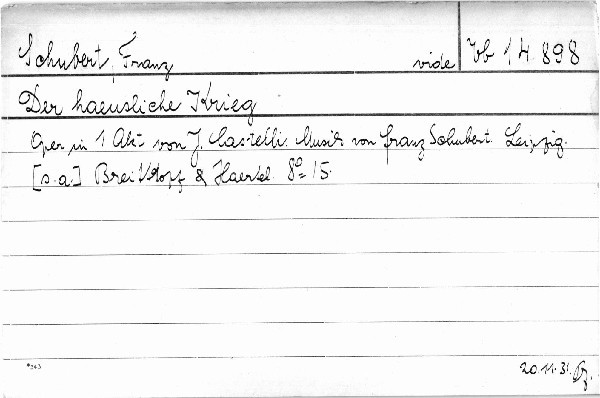 Schubert, Franz vide Vb 14.898
Der haeusliche Krieg
Oper in 1 Akt von J. Castelli. Musik von Franz Schubert. Leipzig.
[s.a.] Breitkopf & Haertel. 8° 15.
*343
20.11.31.